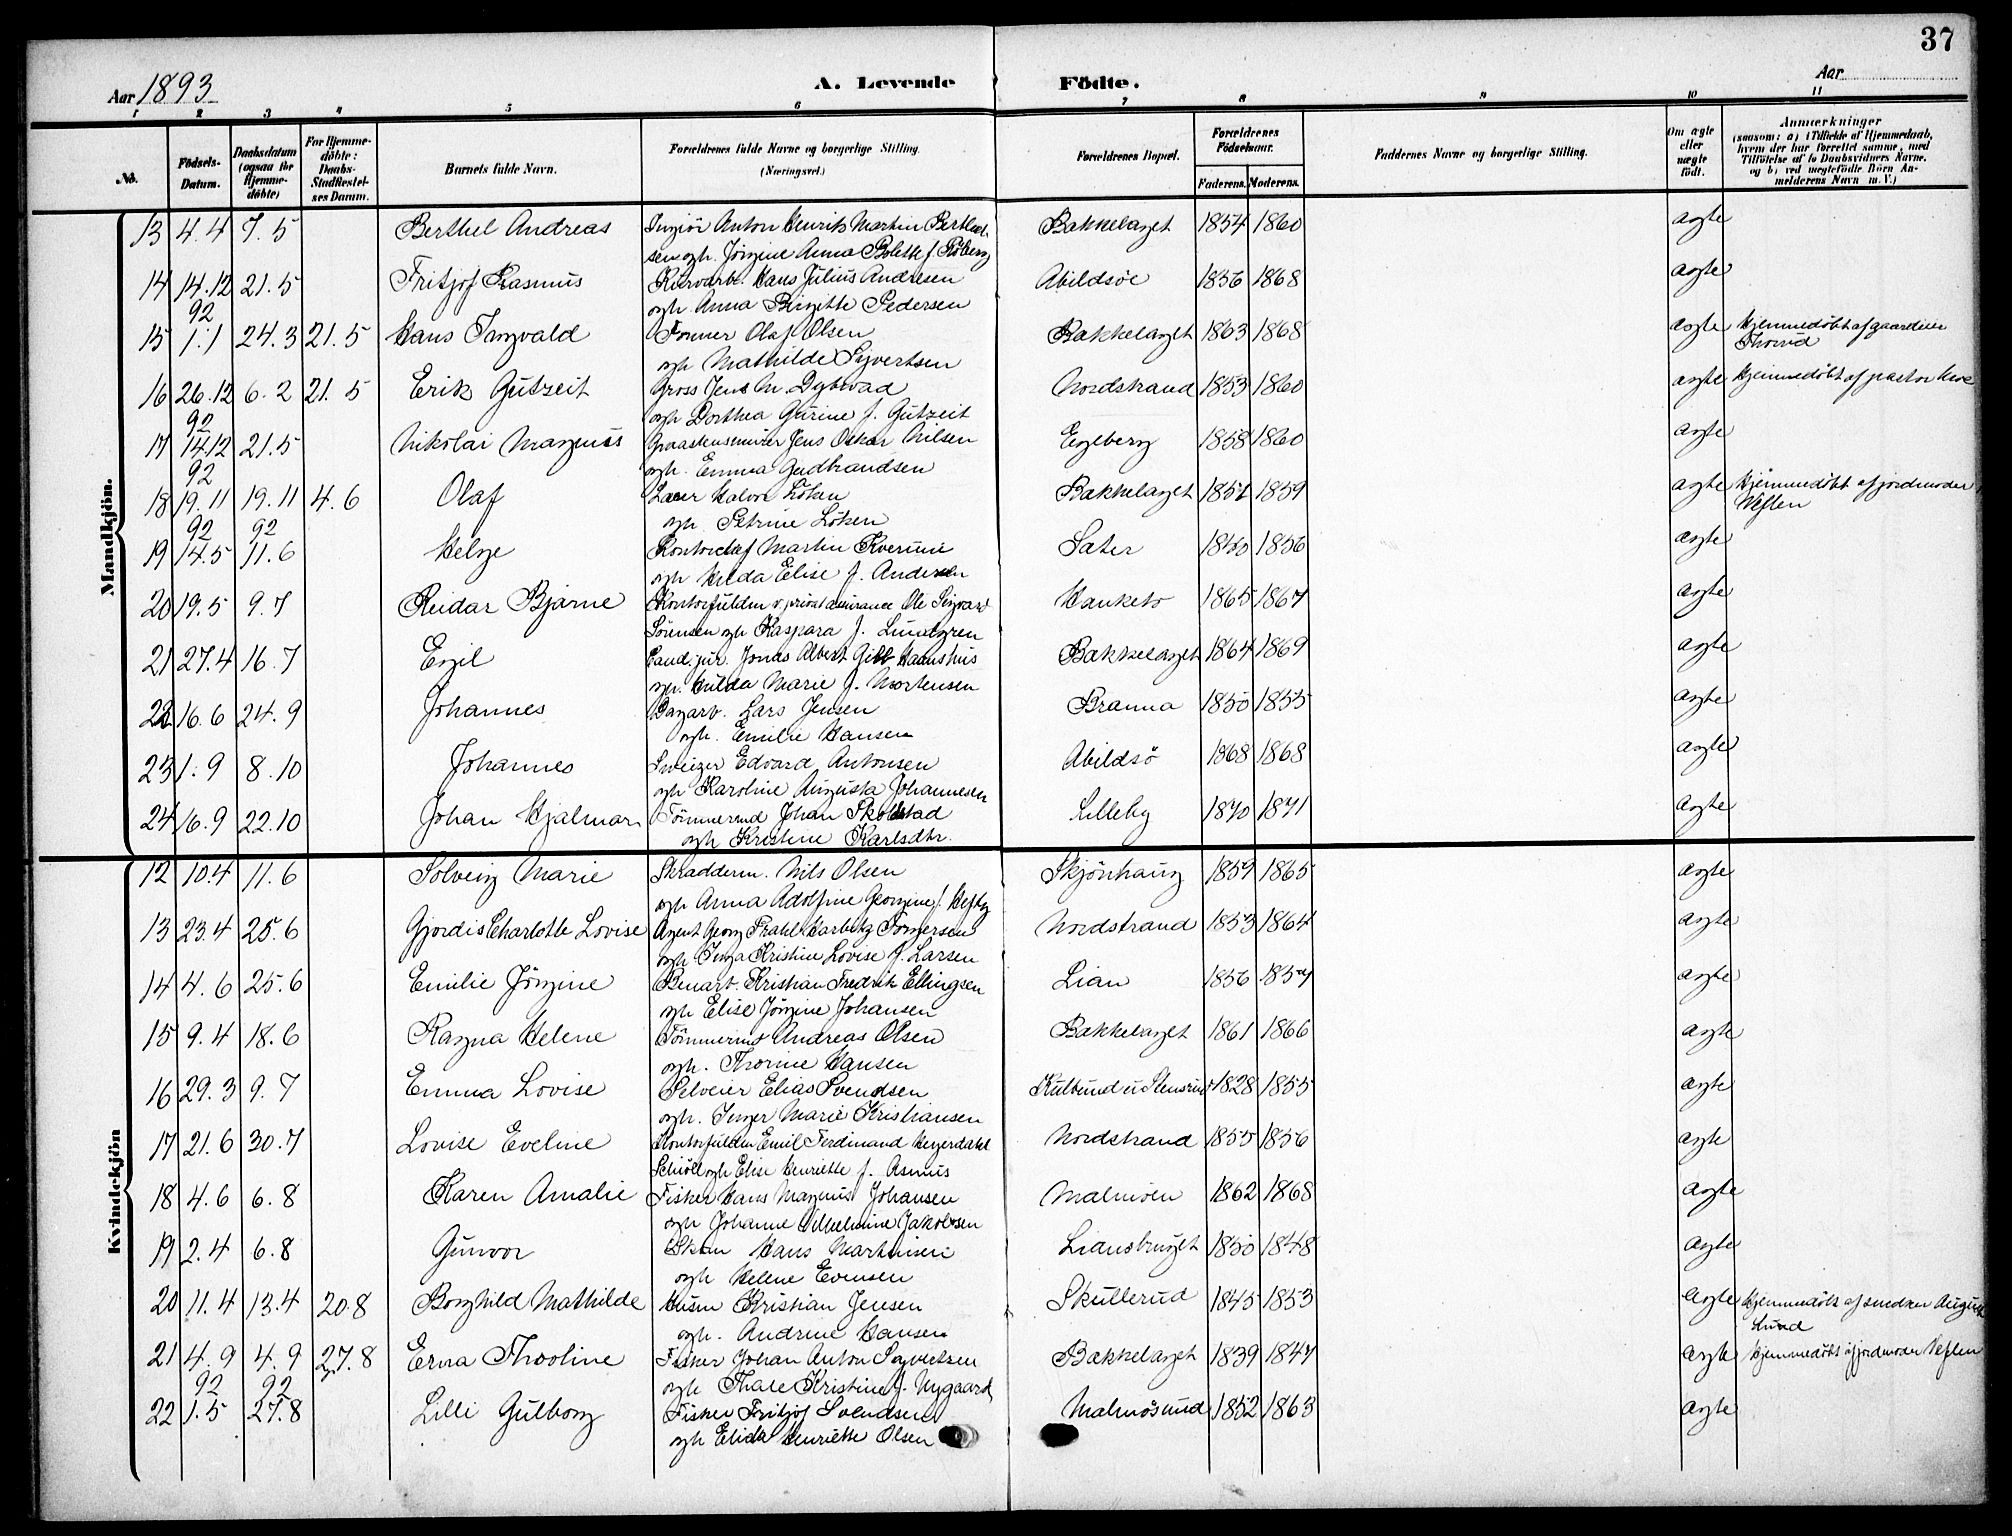 37
Aar 1893
A. Levende Födte.
Aar
1 2 3 4 5 6 7 8 9 10 11
No.
Födsels-Datum.
Daabsdatum (ogsaa for Hjemme-döbte)
For Hjemme-döbte: Daabs-Stadfæstel-ses Datum.
Barnets fulde Navn.
Forældrenes fulde Navne og borgerlige Stilling. (Næringsvei.)
Forældrenes Bopæl.
Forældrenes Födselsaar.
Faderens. Moderens.
Faddernes Navne og borgerlige Stilling.
Om ægte eller uægte födt.
Anmærkninger
(saasom: a) i Tilfælde af Hjemmedaab, hvem der har forrettet samme, med Tilföielse af to Daabsvidners Navne. og b) ved uægtefödte Börn An-melderens Navn m. V.)
Mandkjön.
13 4.4 7.5 Berthel Andreas Ingiör Anton Henrik Martin Berthel- Bakkelaget 1854 1860 ægte
sen og h. Jörgine Anna Bolette f. Röberg
14 14.12 21.5 Fritjof Rasmus Hans Julius Andresen Abildsøe 1856 1868 ægte
92 og h. Anna Birgitte Pedersen
15 1.1 24.3 21.5 Hans Ingvald Former Olaf Olsen Bakkelaget 1863 1868 ægte Hjemmedøbt af gaardeier
og h Mathilde Syvertsen Thorud
16 26.12 6.2 21.5 Erik Gutzeit Gross Jens M. Dybwad Nordstrand 1853 1860 ægte Hjemmedøbt af pastor
92 og h Dorthea Gurine f. Gutzeit
17 14.12 21.5 Nikolai Magnus Graastensmurer Jens Oskar Nilsen Egeberg 1858 1860 ægte
92 og h. Emma Gudbrandsen
18 19.11 19.11 4.6 Olaf Halvor Löken Bakkelaget 1851 1859 ægte Hjemmedöbt af jordmoder
92 92 og h Petrine Löken Veflen
19 14.5 11.6 Helge Kontorchef Martin Sæter 1856 ægte
og h Hilda Elise f. Andersen
20 19.5 9.7 Reidar Bjarne Kontorfuldm v. privat assurance Ole Sigvard Hauketo 1865 1867 ægte
Sörensen og h Kaspara f. Lundgren
21 27.4 16.7 Egil Cand. jur. Jonas Albert Gill Haanshus Bakkelaget 1864 1869 ægte
og h. Hilda Marie f. Mortensen
22 16.6 24.9 Johannes Dagarb. Lars Jensen Branna 1850 1855 ægte
og h. Emilie Hansen
23 1.9 8.10 Johannes Sveizer Edvard Antonsen Abildsö 1868 1868 ægte
og h Karoline Augusta Johannesen
24 16.9 22.10 Johan Hjalmar Tömmermd Johan Skolstad Lilleby 1870 1871 ægte
og h Kristine Karlsdtr.
Kvindekjön
12 10.4 11.6 Solveig Marie Skræderm. Nils Olsen Skjönhaug 1859 1865 ægte
og h Anna Adolfine Georgine f. Hefty
13 23.4 25.6 Gjordis Charlotte Lovise Agent Georg Prahl Harbitz Nordstrand 1853 1864 ægte
og h Inga Kristine Lovise f. Larsen
14 4.6 25.6 Emilie Jörgine Kristian Fredrik Ellingsen Lian 1856 1857 ægte
og h Elise Jörgine Johansen
15 9.4 18.6 Ragna Helene Tömmermd Andreas Olsen Bakkelaget 1861 1866 ægte
og h. Thorine Hansen
16 29.3 9.7 Emma Lovise Selveier Elias Svendsen Kulbund u. Stensrud 1828 1855 ægte
og h. Inger Marie Kristiansen
17 21.6 30.7 Lovise Eveline Kontorfuldm Emil Ferdinand Heyerdahl Nordstrand 1855 1856 ægte
Schiöll og h Elise Henriette f. Asmus
18 4.6 6.8 Karen Amalie Fisker Hans Magnus Johansen Malmöen 1862 1868 ægte
og h Johanne Vilhelmine Jakobsen
19 2.4 6.8 Gunvor Hans Martinsen Liansbruget 1850 1848 ægte
og h Helene Evensen
20 11.4 13.4 20.8 Borghild Mathilde Husm Kristian Jensen Skullerud 1845 1853 ægte Hjemmedöbt af snedker August
og h. Andrine Hansen Lund
21 4.9 4.9 27.8 Erna Thooline Fisker Johan Anton Syvertsen Bakkelaget 1839 1847 ægte Hjemmedöbt af jordmoder Veflen
92 92 og h Thale Kristine f. Nygaard
22 1.5 27.8 Lilli Gulborg Fisker Fritjof Svendsen Malmösund 1852 1863 ægte
og h Elida Henriette Olsen